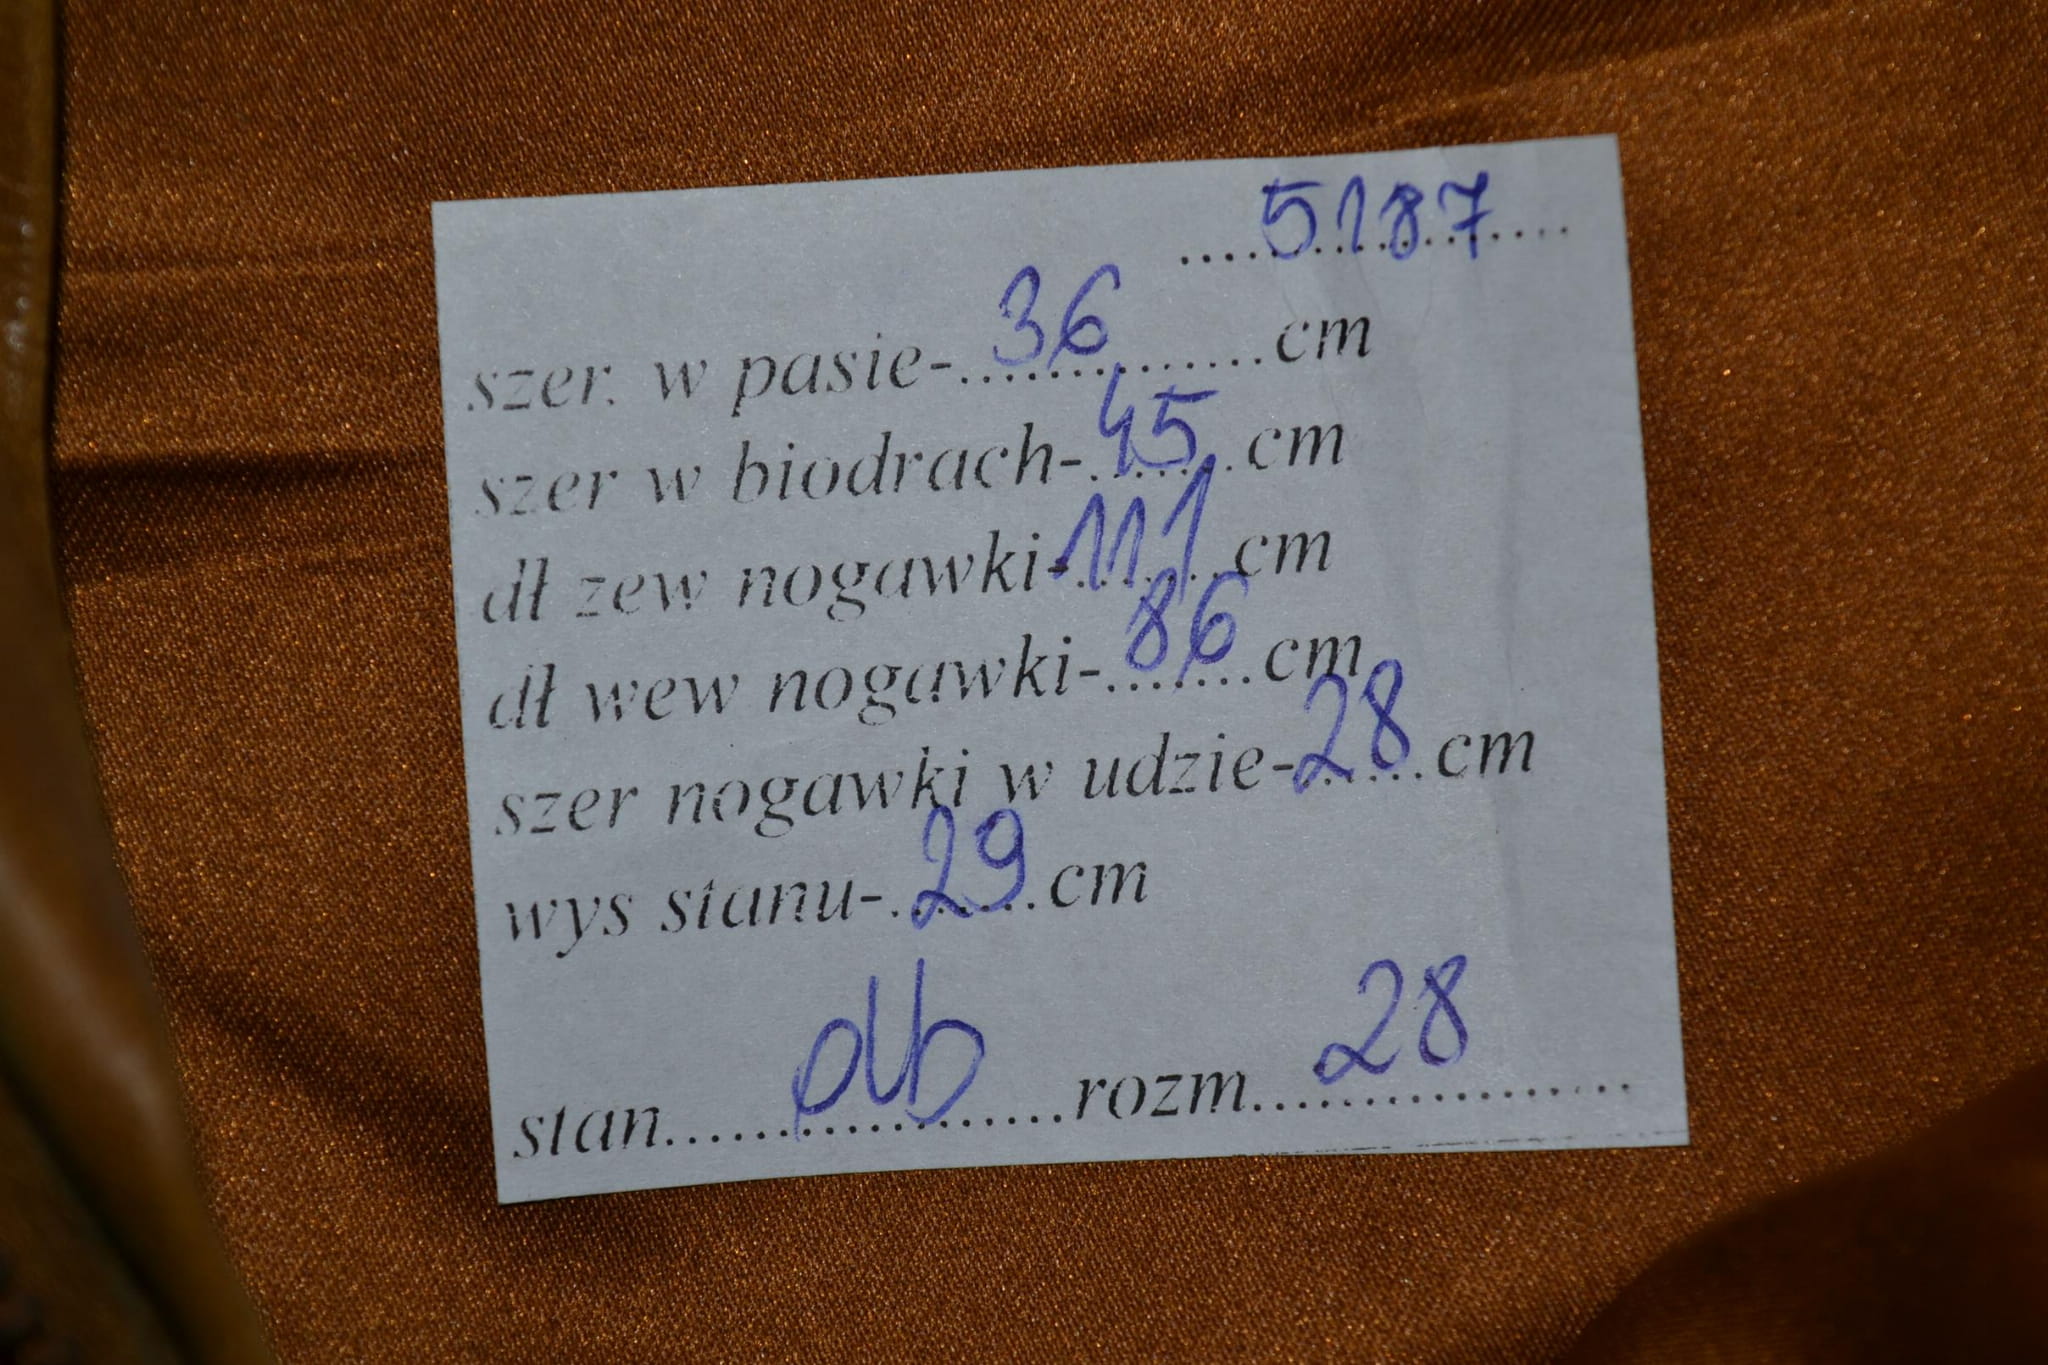 ....5187....
szer. w pasie-36cm
szer w biodrach-45cm
dł zew nogawki-111cm
dł wew nogawki-86cm
szer nogawki w udzie-28cm
wys stanu-29cm
stan....db....rozm....28....